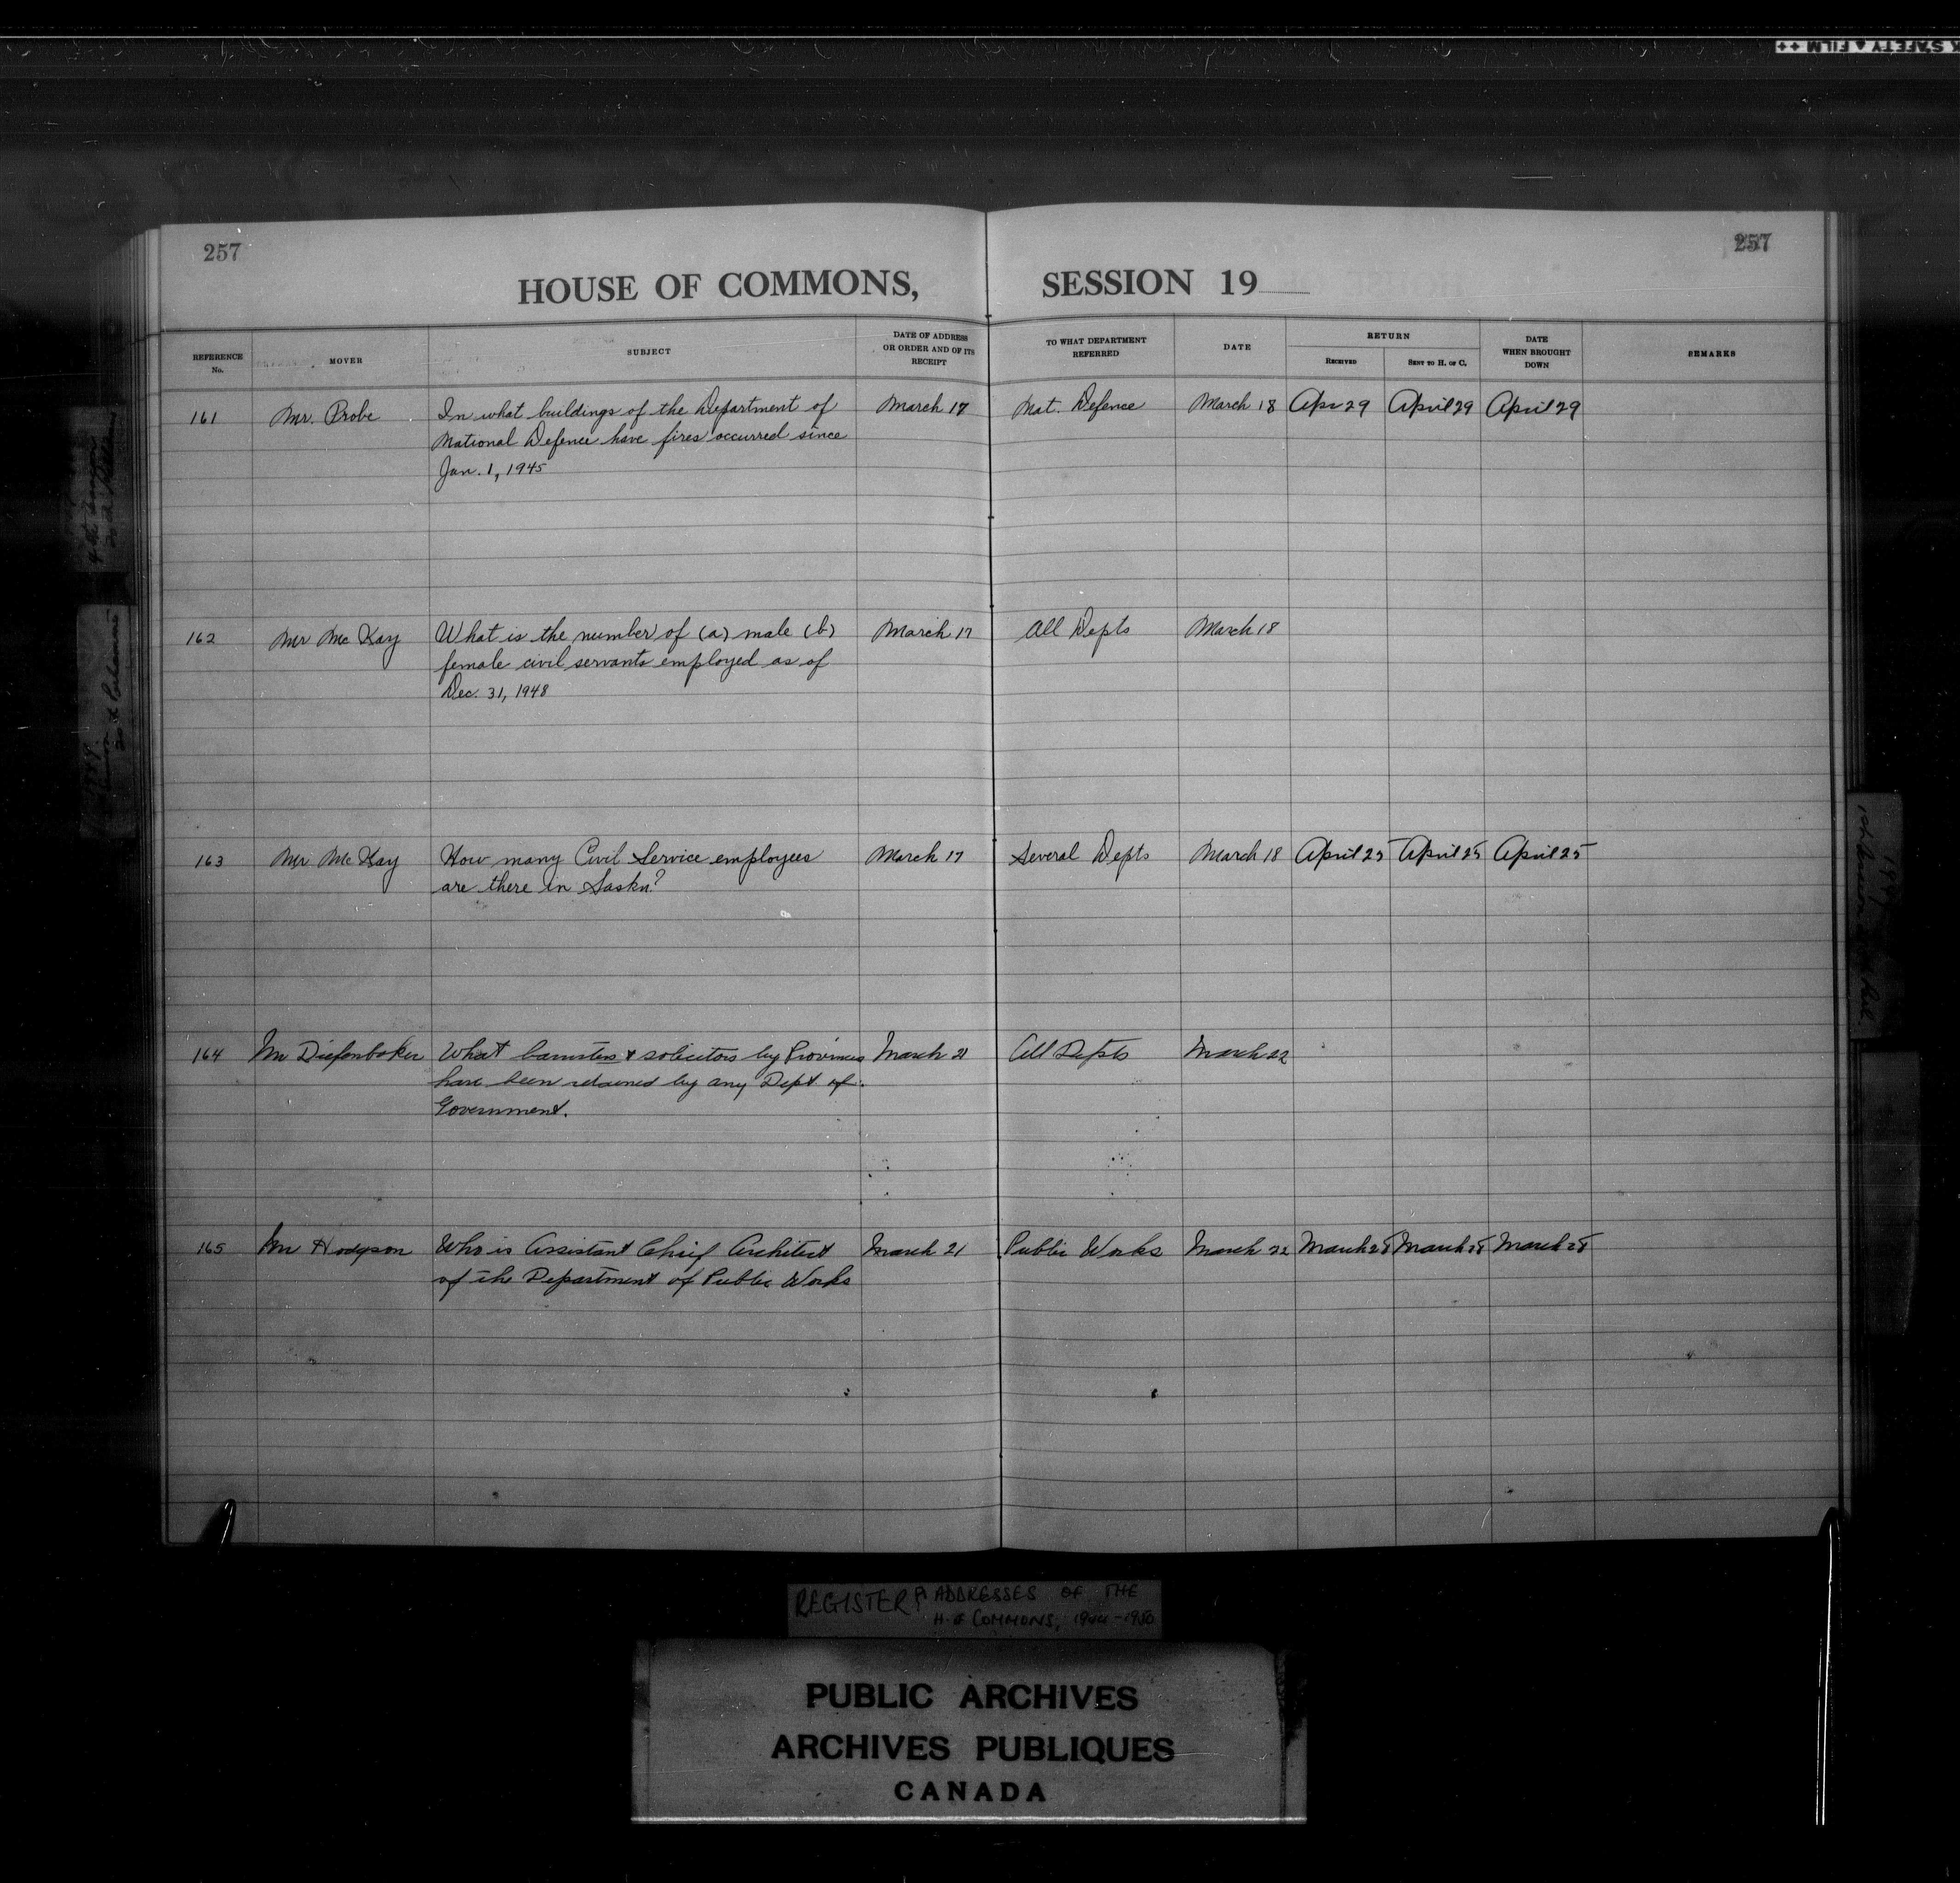 SAFETY FILM
257
257
HOUSE OF COMMONS, SESSION 19
REFERENCE No.
MOVER
SUBJECT
DATE OF ADDRESS OR ORDER AND OF ITS RECEIPT
TO WHAT DEPARTMENT REFERRED
DATE
RETURN
RECEIVED
SENT TO H. OF C.
DATE WHEN BROUGHT DOWN
REMARKS
161 Mr. Probe In what buildings of the Department of March 17 Nat. Defence March 18 Apr 29 April 29 April 29
National Defence have fires occurred since
Jan. 1, 1945
162 Mr McKay What is the number of (a) male (b) March 17 All Depts March 18
female civil servants employed as of
Dec. 31, 1948
163 Mr McKay How many Civil Service employees March 17 Several Depts March 18 April 25 April 25 April 25
are there in Saskn?
164 Mr Diefenbaker What barristers & solicitors by Provinces March 21 All Depts March 22
have been retained by any Dept of
Government.
165 Mr Hodgson Who is Assistant Chief Architect March 21 Public Works March 22 March 28 March 28 March 28
of the Department of Public Works
REGISTER OF ADDRESSES OF THE
H. of COMMONS, 1944-1950
PUBLIC ARCHIVES
ARCHIVES PUBLIQUES
CANADA